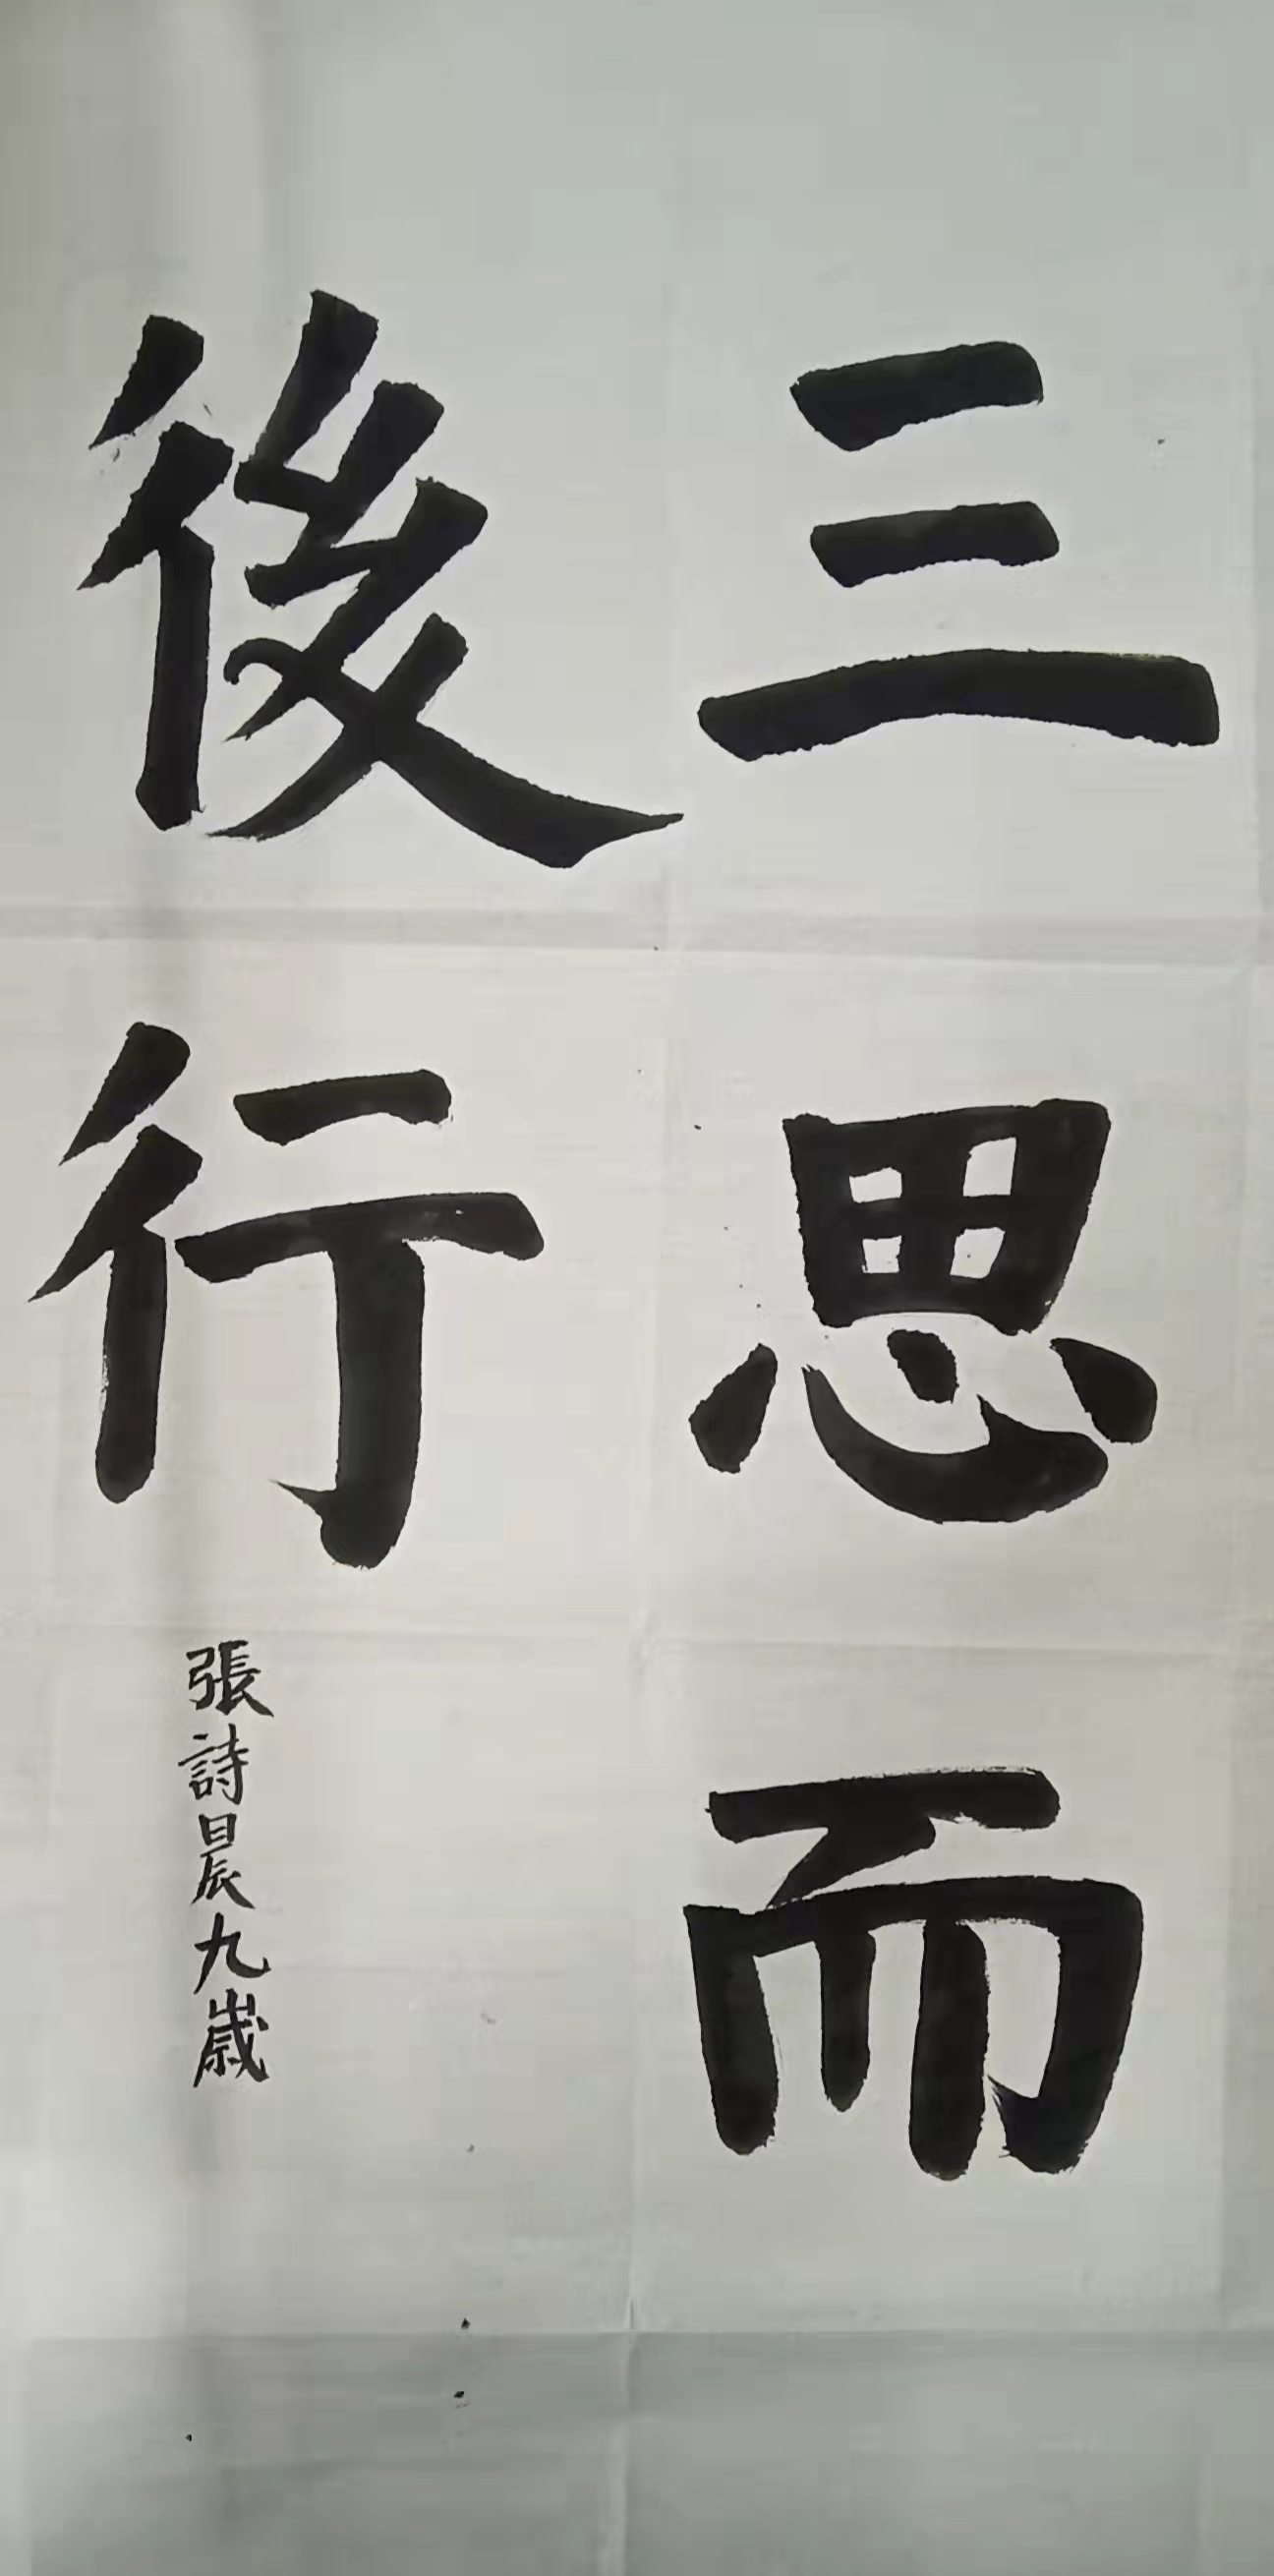 三思而
後行
張詩晨九歲